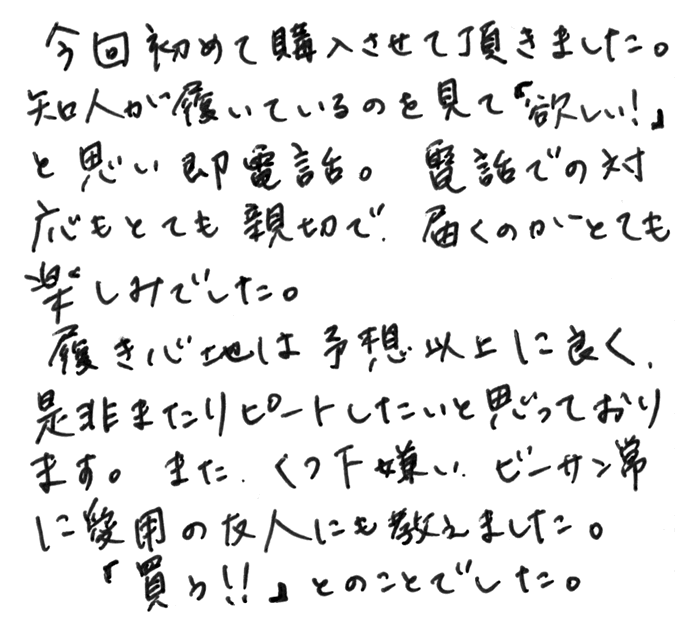 今回初めて購入させて頂きました。
知人が履いているのを見て「欲しい!」
と思い即電話。電話での対
応もとても親切で、届くのがとても
楽しみでした。
履き心地は予想以上に良く、
是非またリピートしたいと思っており
ます。また、くつ下嫌い、ビーサン常
に愛用の友人にも教えました。
「買う!!」とのことでした。